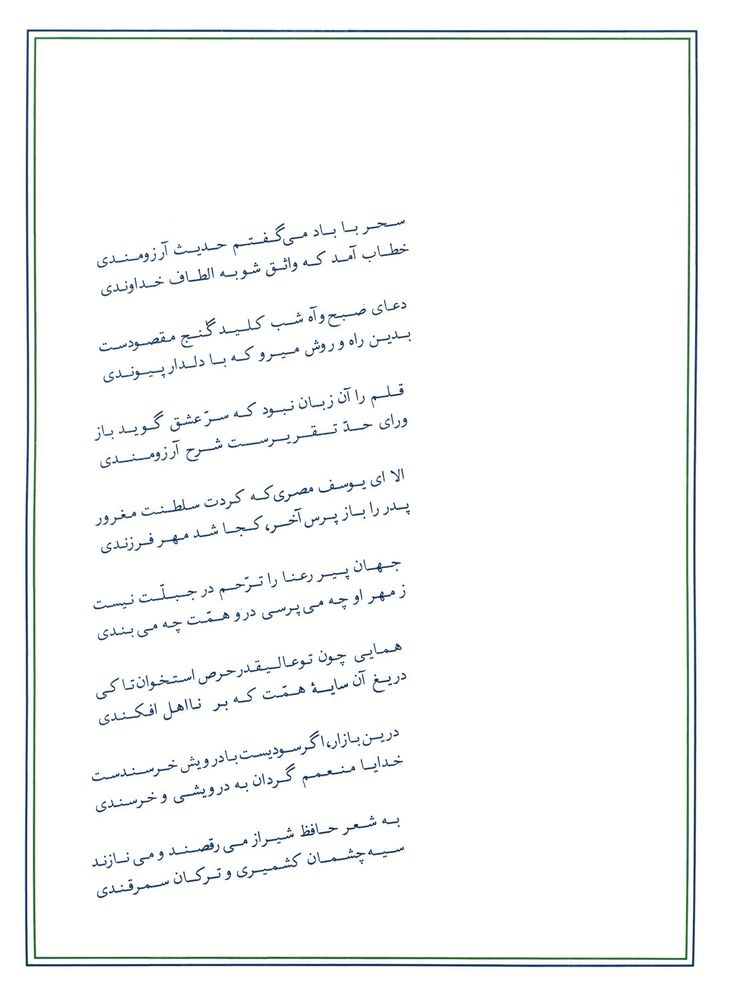 سحر با باد می‌گفتم حدیث آرزومندی
خطاب آمد که واثق شو به الطاف خداوندی
دعای صبح و آه شب کلید گنج مقصودست
بدین راه و روش میرو که با دلدار پیوندی
قلم را آن زبان نبود که سرّ عشق گوید باز
ورای حدّ تقریرست شرح آرزومندی
الا ای یوسف مصری که کردت سلطنت مغرور
پدر را باز پرس آخر، کجا شد مهر فرزندی
جهان پیر رعنا را ترّحم در جبلّت نیست
ز مهر او چه می‌پرسی درو همّت چه می‌بندی
همایی چون تو عالیقدر حرص استخوان تا کی
دریغ آن سایهٔ همّت که بر نااهل افکندی
درین بازار، اگر سودیست با درویش خرسندست
خدایا منعمم گردان به درویشی و خرسندی
به شعر حافظ شیراز می‌رقصند و می‌نازند
سیه چشمان کشمیری و ترکان سمرقندی